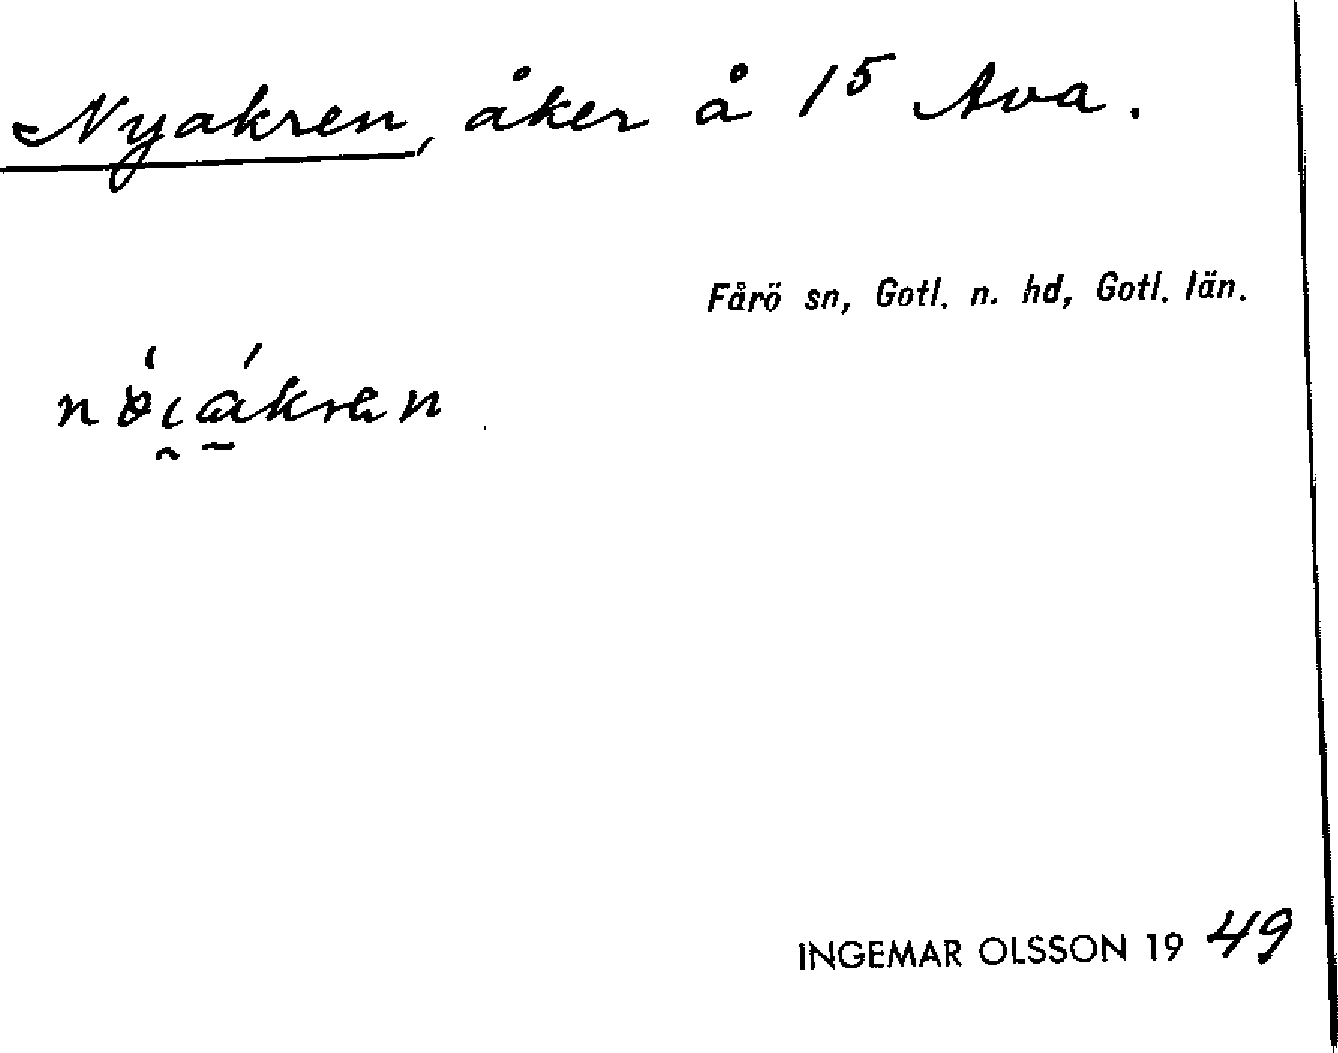 Nyakren, åker å 1⁵ Ava.
Fårö sn, Gotl. n. hd, Gotl. län.
INGEMAR OLSSON 19 49